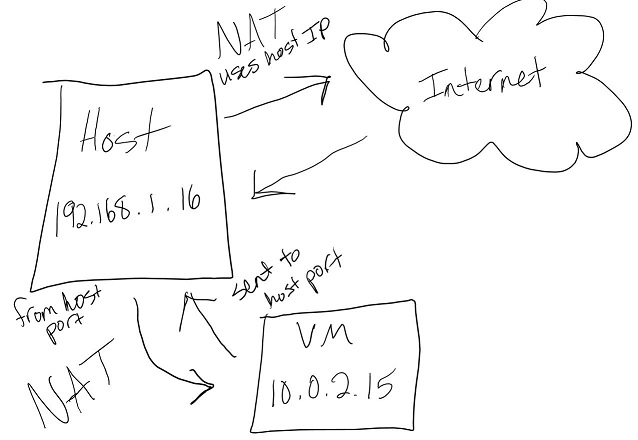 NAT
uses host IP
Internet
Host
192.168.1.16
sent to
host port
from host
port
NAT
VM
10.0.2.15